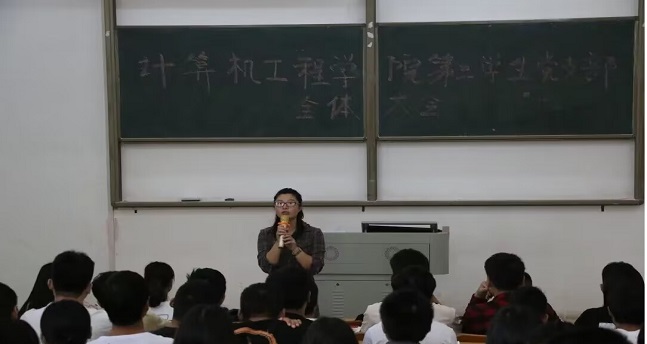 计算机工程学院第二学生党支部
全体大会